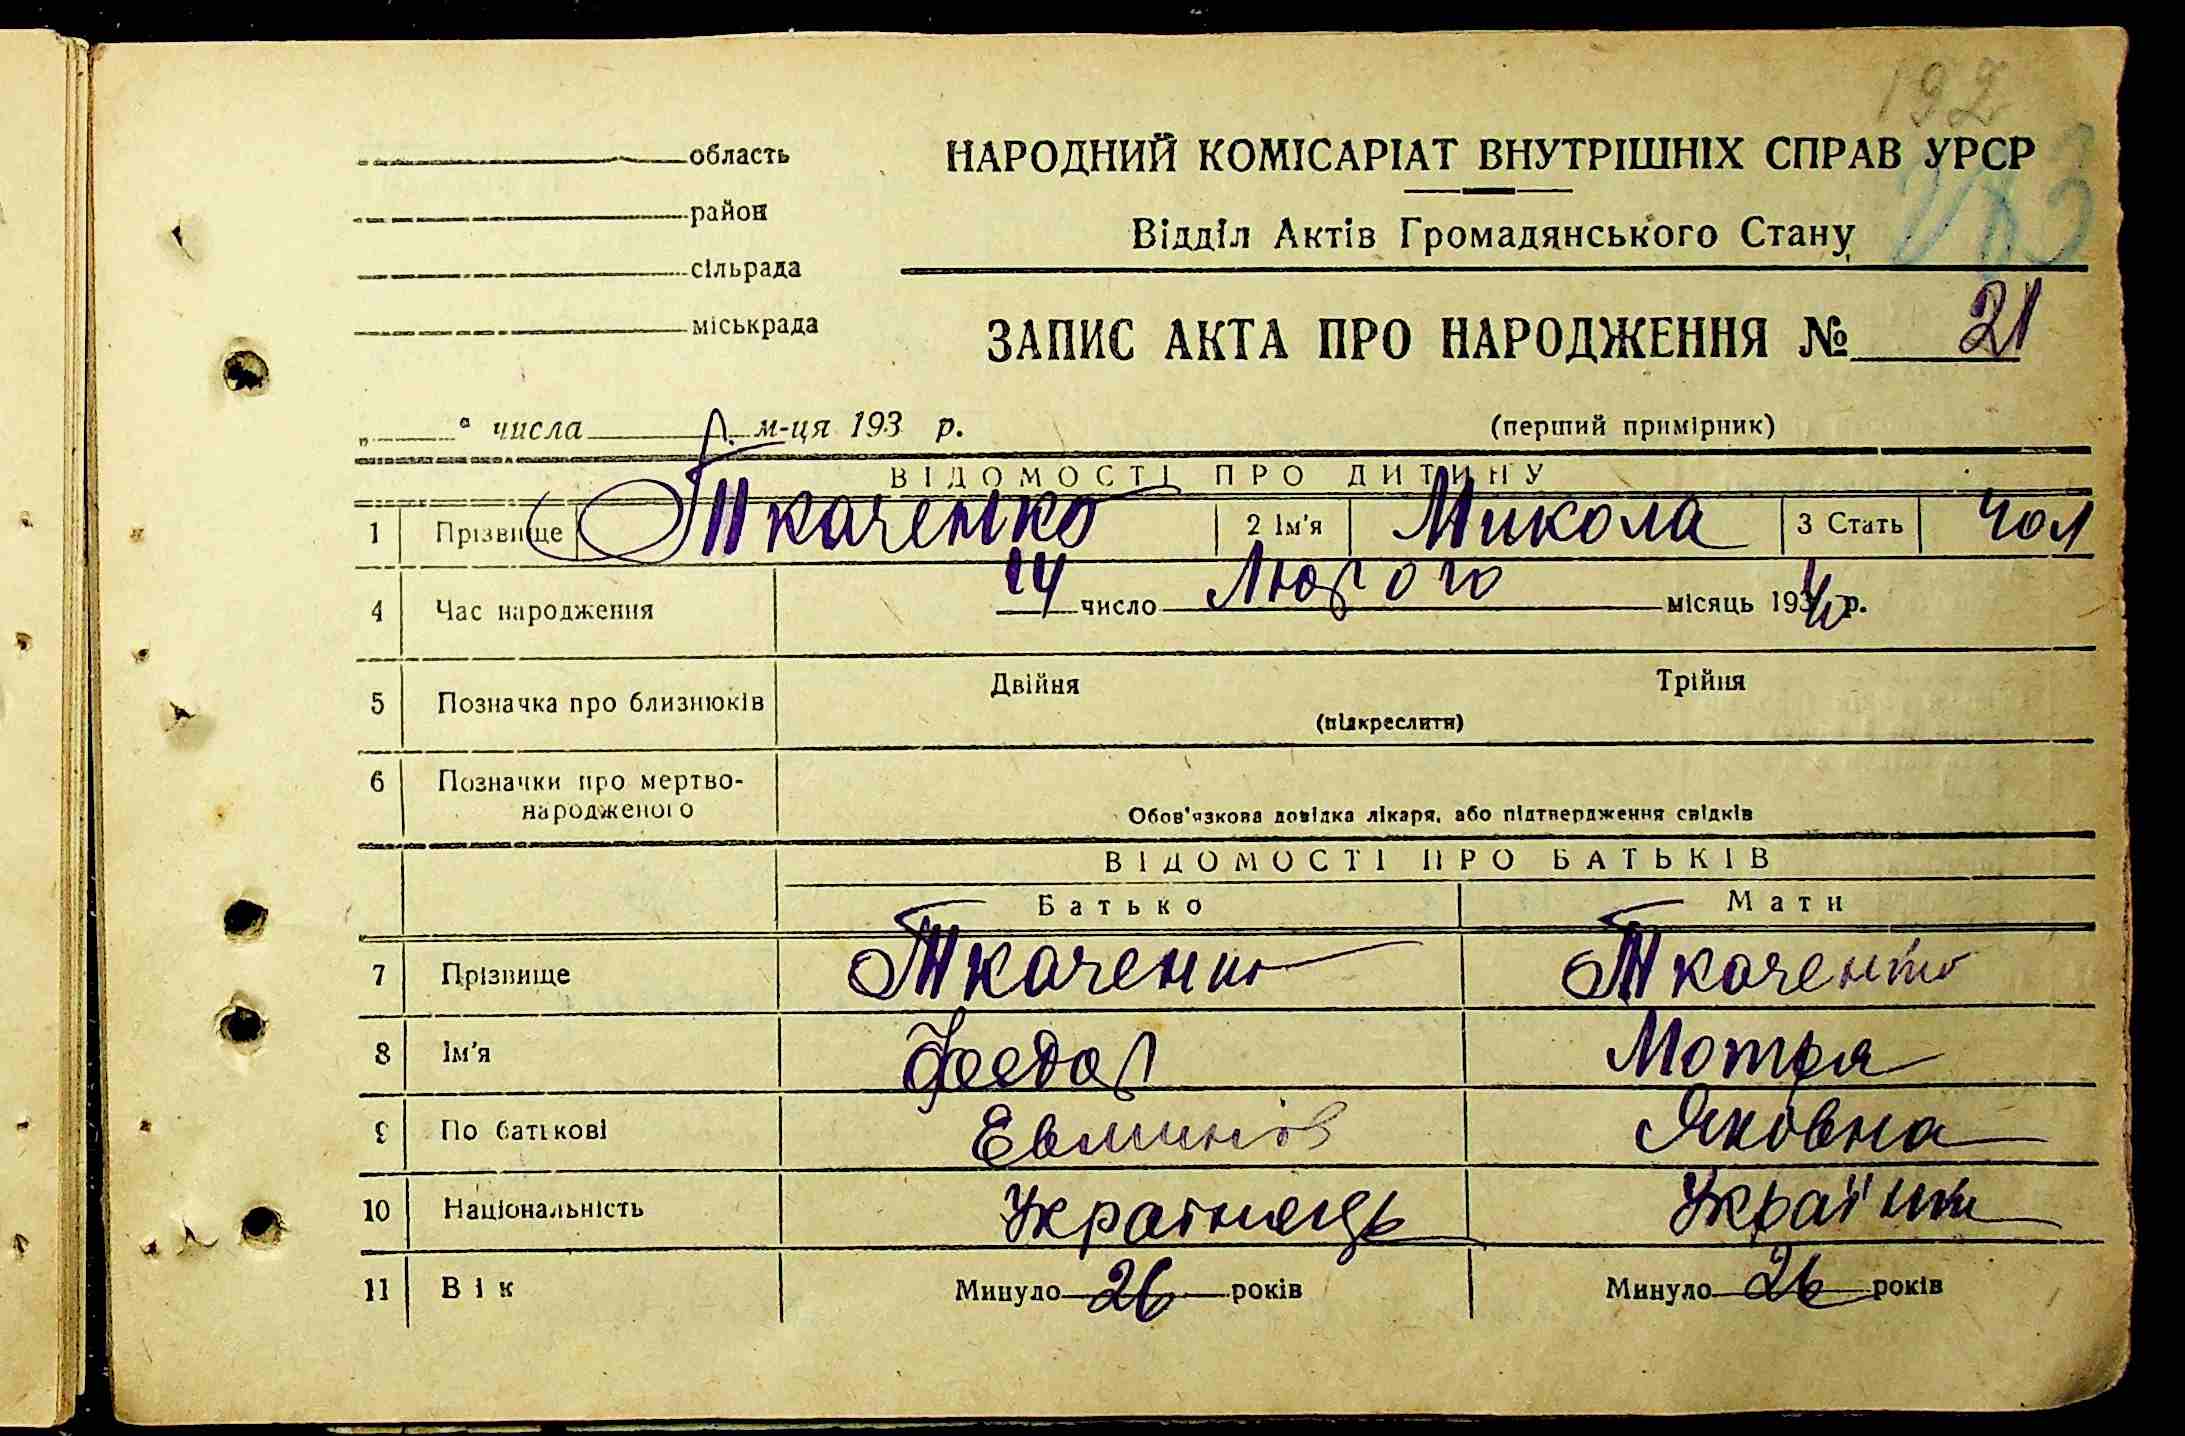 192
область
НАРОДНИЙ КОМІСАРІАТ ВНУТРІШНІХ СПРАВ УРСР
район
Відділ Актів Громадянського Стану
сільрада
міськрада
ЗАПИС АКТА ПРО НАРОДЖЕННЯ № 21
„ “ числа м-ця 193 р.
(перший примірник)
ВІДОМОСТІ ПРО ДИТИНУ
1 Прізвище Ткаченко 2 Ім'я Микола 3 Стать Чол
4 Час народження 14 число Лютого місяць 1940 р.
5 Позначка про близнюків Двійня Трійня
(підкреслити)
6 Позначки про мертво-
народженого
Обов'язкова довідка лікаря, або підтвердження свідків
ВІДОМОСТІ ПРО БАТЬКІВ
Батько Мати
7 Прізвище Ткаченко Ткаченко
8 Ім'я Федор Мотря
9 По батькові Яковна
10 Національність Українець Українка
11 Вік Минуло 26 років Минуло 26 років